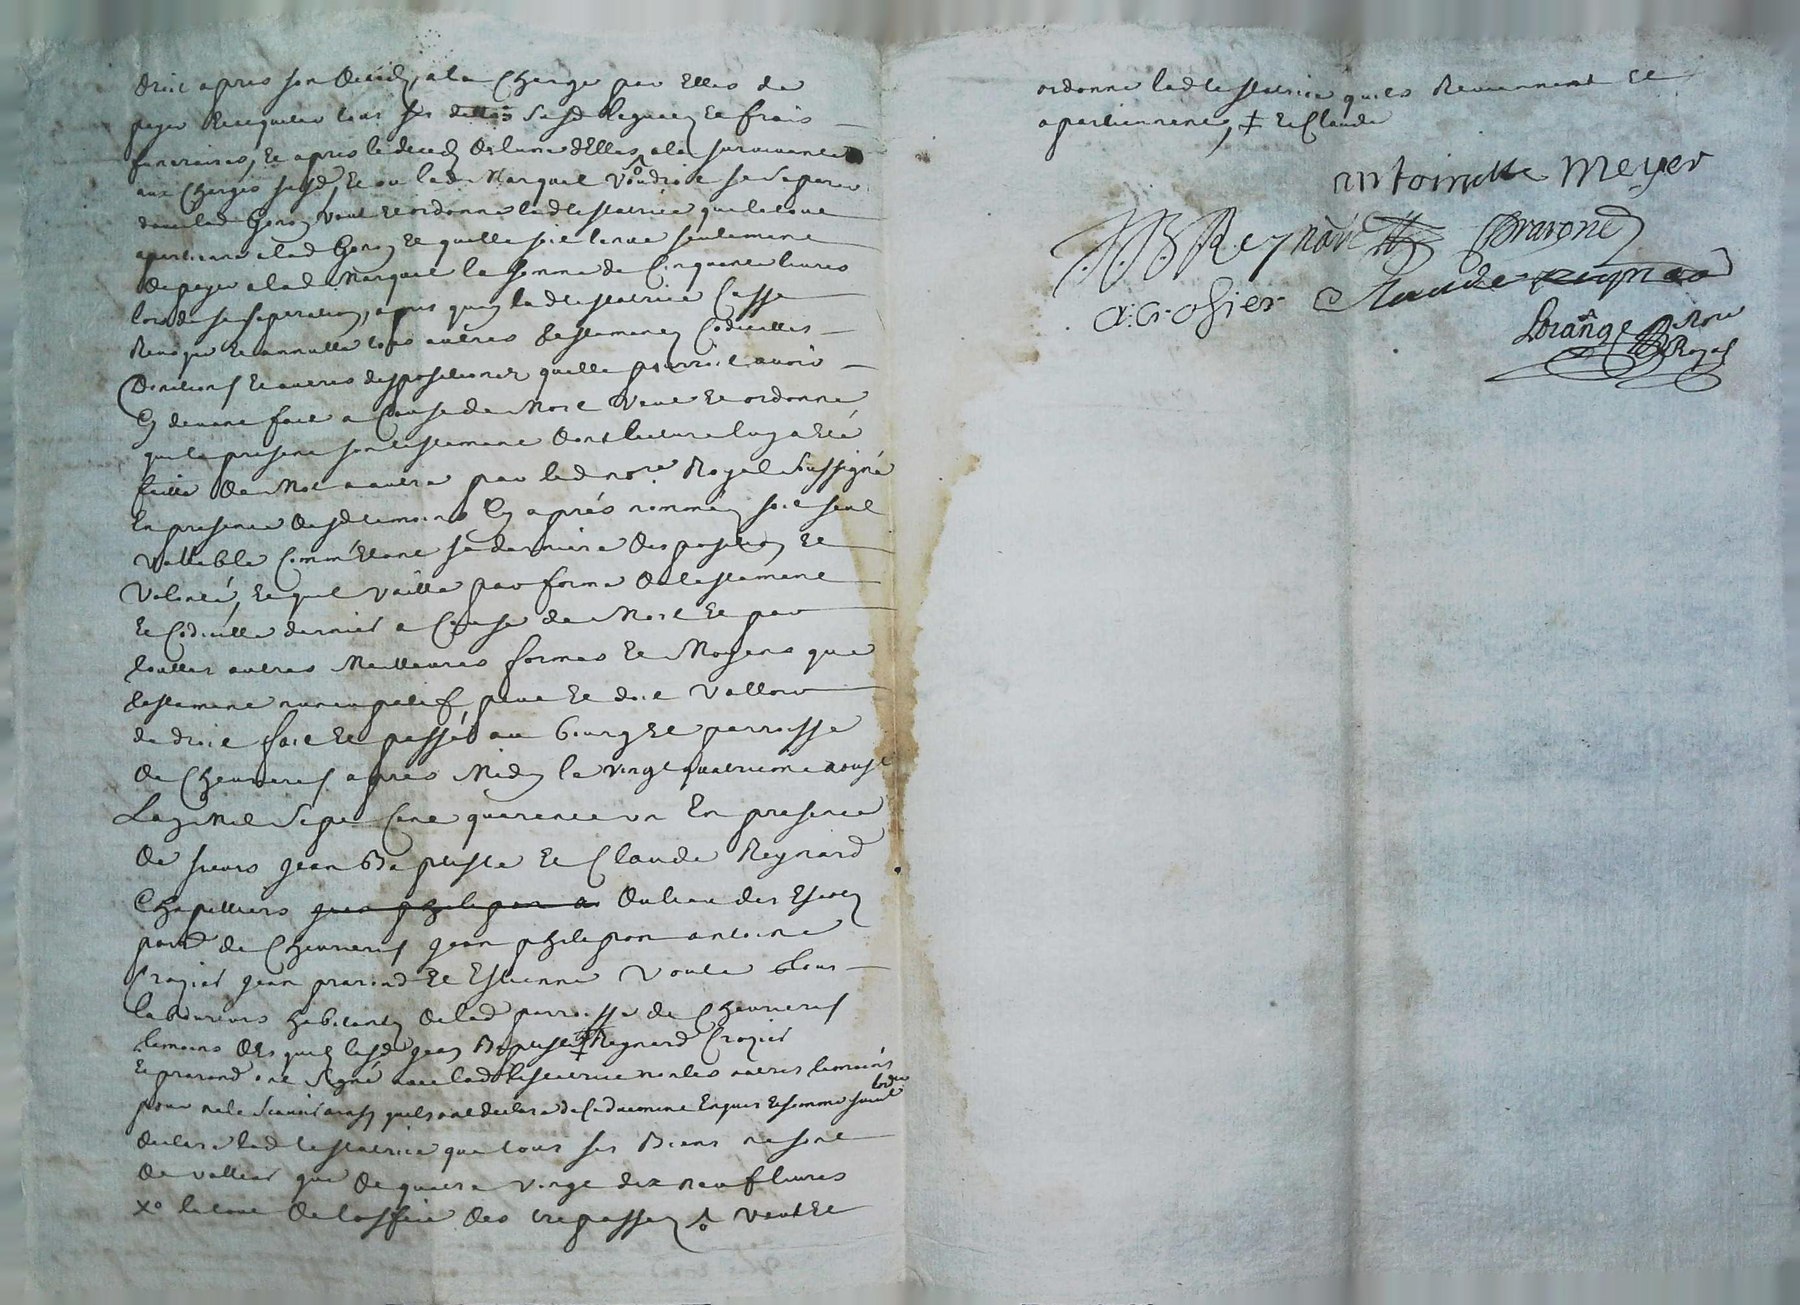 droit apres son deced, a la charge par Elles de
payer Et acquiter tous ses dettes susd legues Et frais
funeraires, Et apres le deced de lune dElles a la survivante
aux charges susd, Et ou lad. Marquet voudroit se separer
davec lad veut Et ordonne lad testatrice que le tout
apartienne a lad Et quelle soit tenue seulement
de payer a lad. Marquet la somme de Cinquante livres
lors de sa separation, apres quoy lad testatrice Casse
Revoque Et annulle tous autres testaments Codicilles
Donations Et autres dispositions quelle pourroit avoir
Cy devant fait a Cause de Mort Veut Et ordonne
que le present son testament dont lecture luy a Eté
faitte de Mot a autre par led no.re Royal Soussigné
En presence desd temoins Cy après nommés soit seul
Vallable Comm'Etant sa derniere disposition Et
Volonté, Et quil vaille par forme de testament
Et Codicille dernier a Cause de Mort Et par
touttes autres Meilleures formes Et Moyens que
testament nuncupatif peut Et doit Valloir
de droit fait Et passé au bourg Et parroisse
de Chevrieres apres Midy le vingt quatrieme aoust
Lan Mil Sept Cent quarente un En presence
de sieurs jean Baptiste Et Claude Reynard
Chapelliers du lieu des
parr de Chevrieres jean philipon antoine
Crozier jean pravond Et Estienne Voute tous
laboureurs habitants de lad parroisse de Chevrieres
temoins desquels lesd jean Baptiste ‡ Reynard Crozier
Et pravond ont signé avec lad testatrice non les autres temoins
pour ne le Scavoir quils ont declaré de ce duement Enquis Et sommés suivt lordce
declare lad testatrice que tous ses Biens ne sont
de valleur que de quatre vingt dix neuf livres
Xo le tout de loffice des trepassés veut Et
ordonne lad testatrice quils Reviennent Et
apartiennent, ‡ Et Claude
antoinette Meyer
J. B. Reynard pravond
a. crosier Claude reynard
Lorange No.re Royal